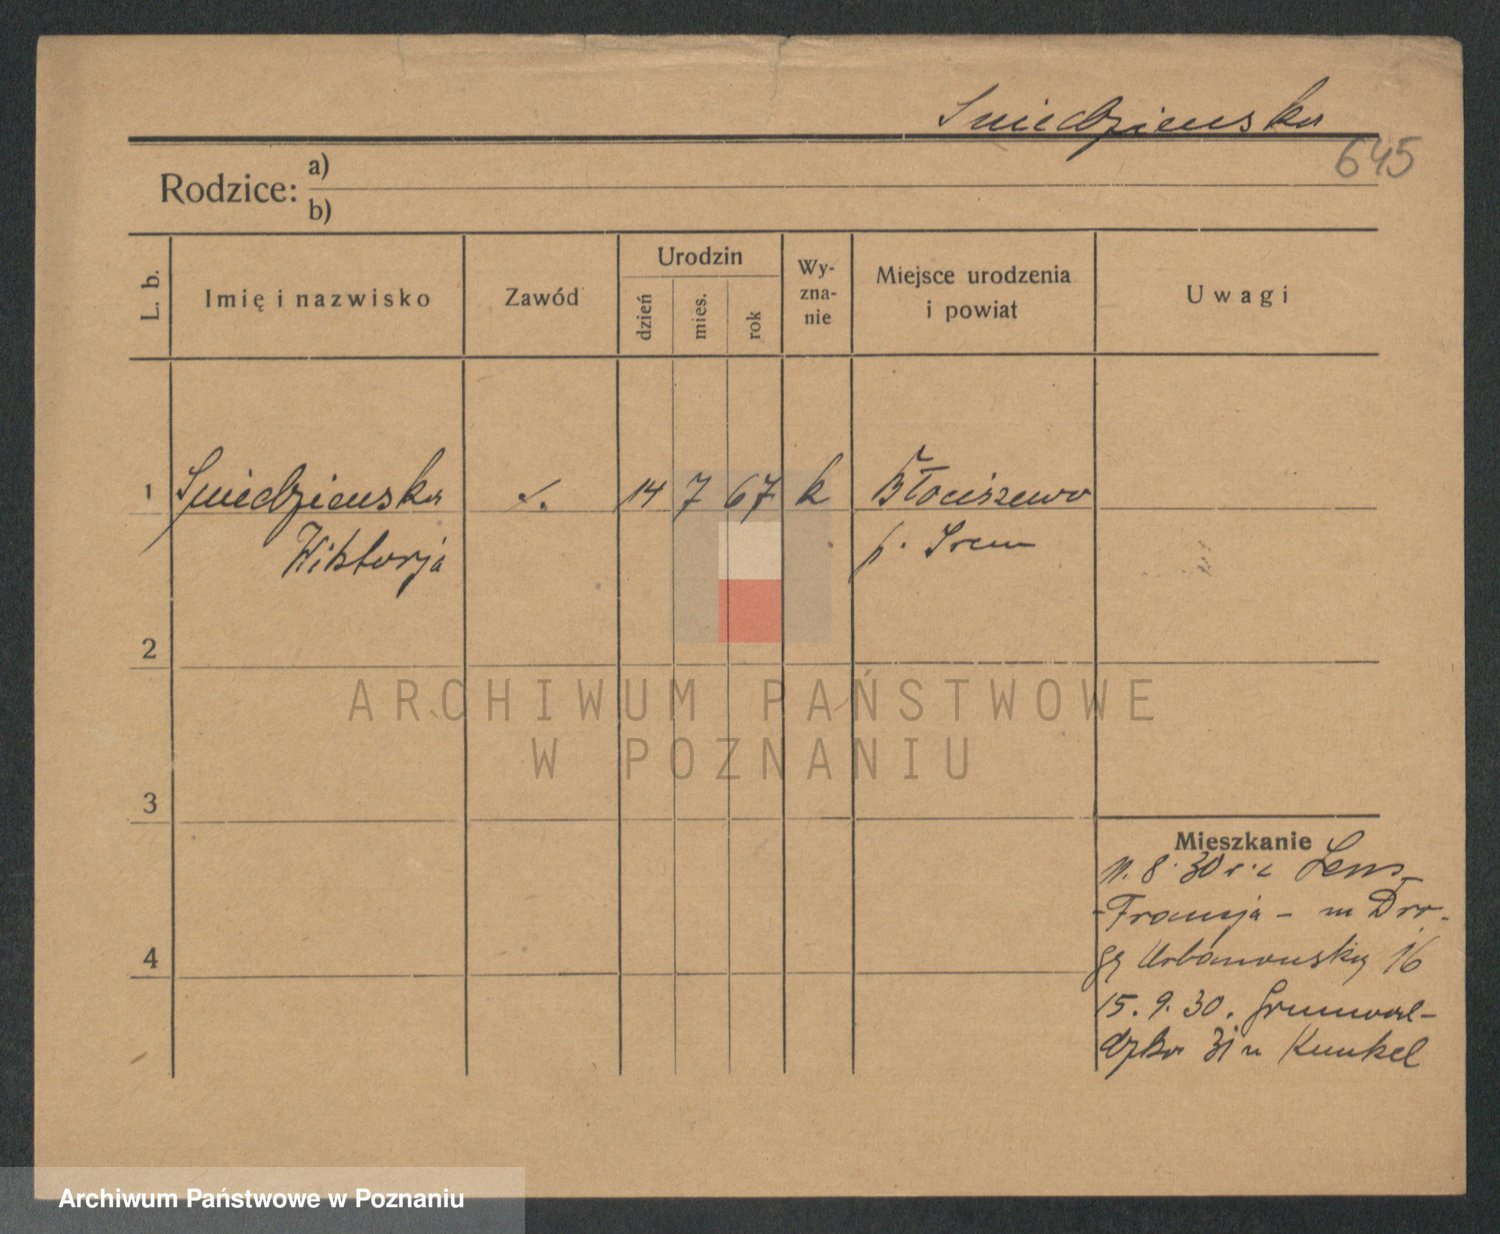 Sniedziewska
645
Rodzice: a)
b)
L. b.
Imię i nazwisko
Zawód
Urodzin
dzień
mies.
rok
Wy-
zna-
nie
Miejsce urodzenia
i powiat
Uwagi
1 Sniedziewska 14 7 67 k Błociszewo
Wiktorja p. Srem
2
ARCHIWUM PAŃSTWOWE
W POZNANIU
3
Mieszkanie
11. 8. 30 Lens
-Francja-
4
Urbanowską 16
15. 9. 30. Grunwal-
dzka 31 u Kunkel
Archiwum Państwowe w Poznaniu